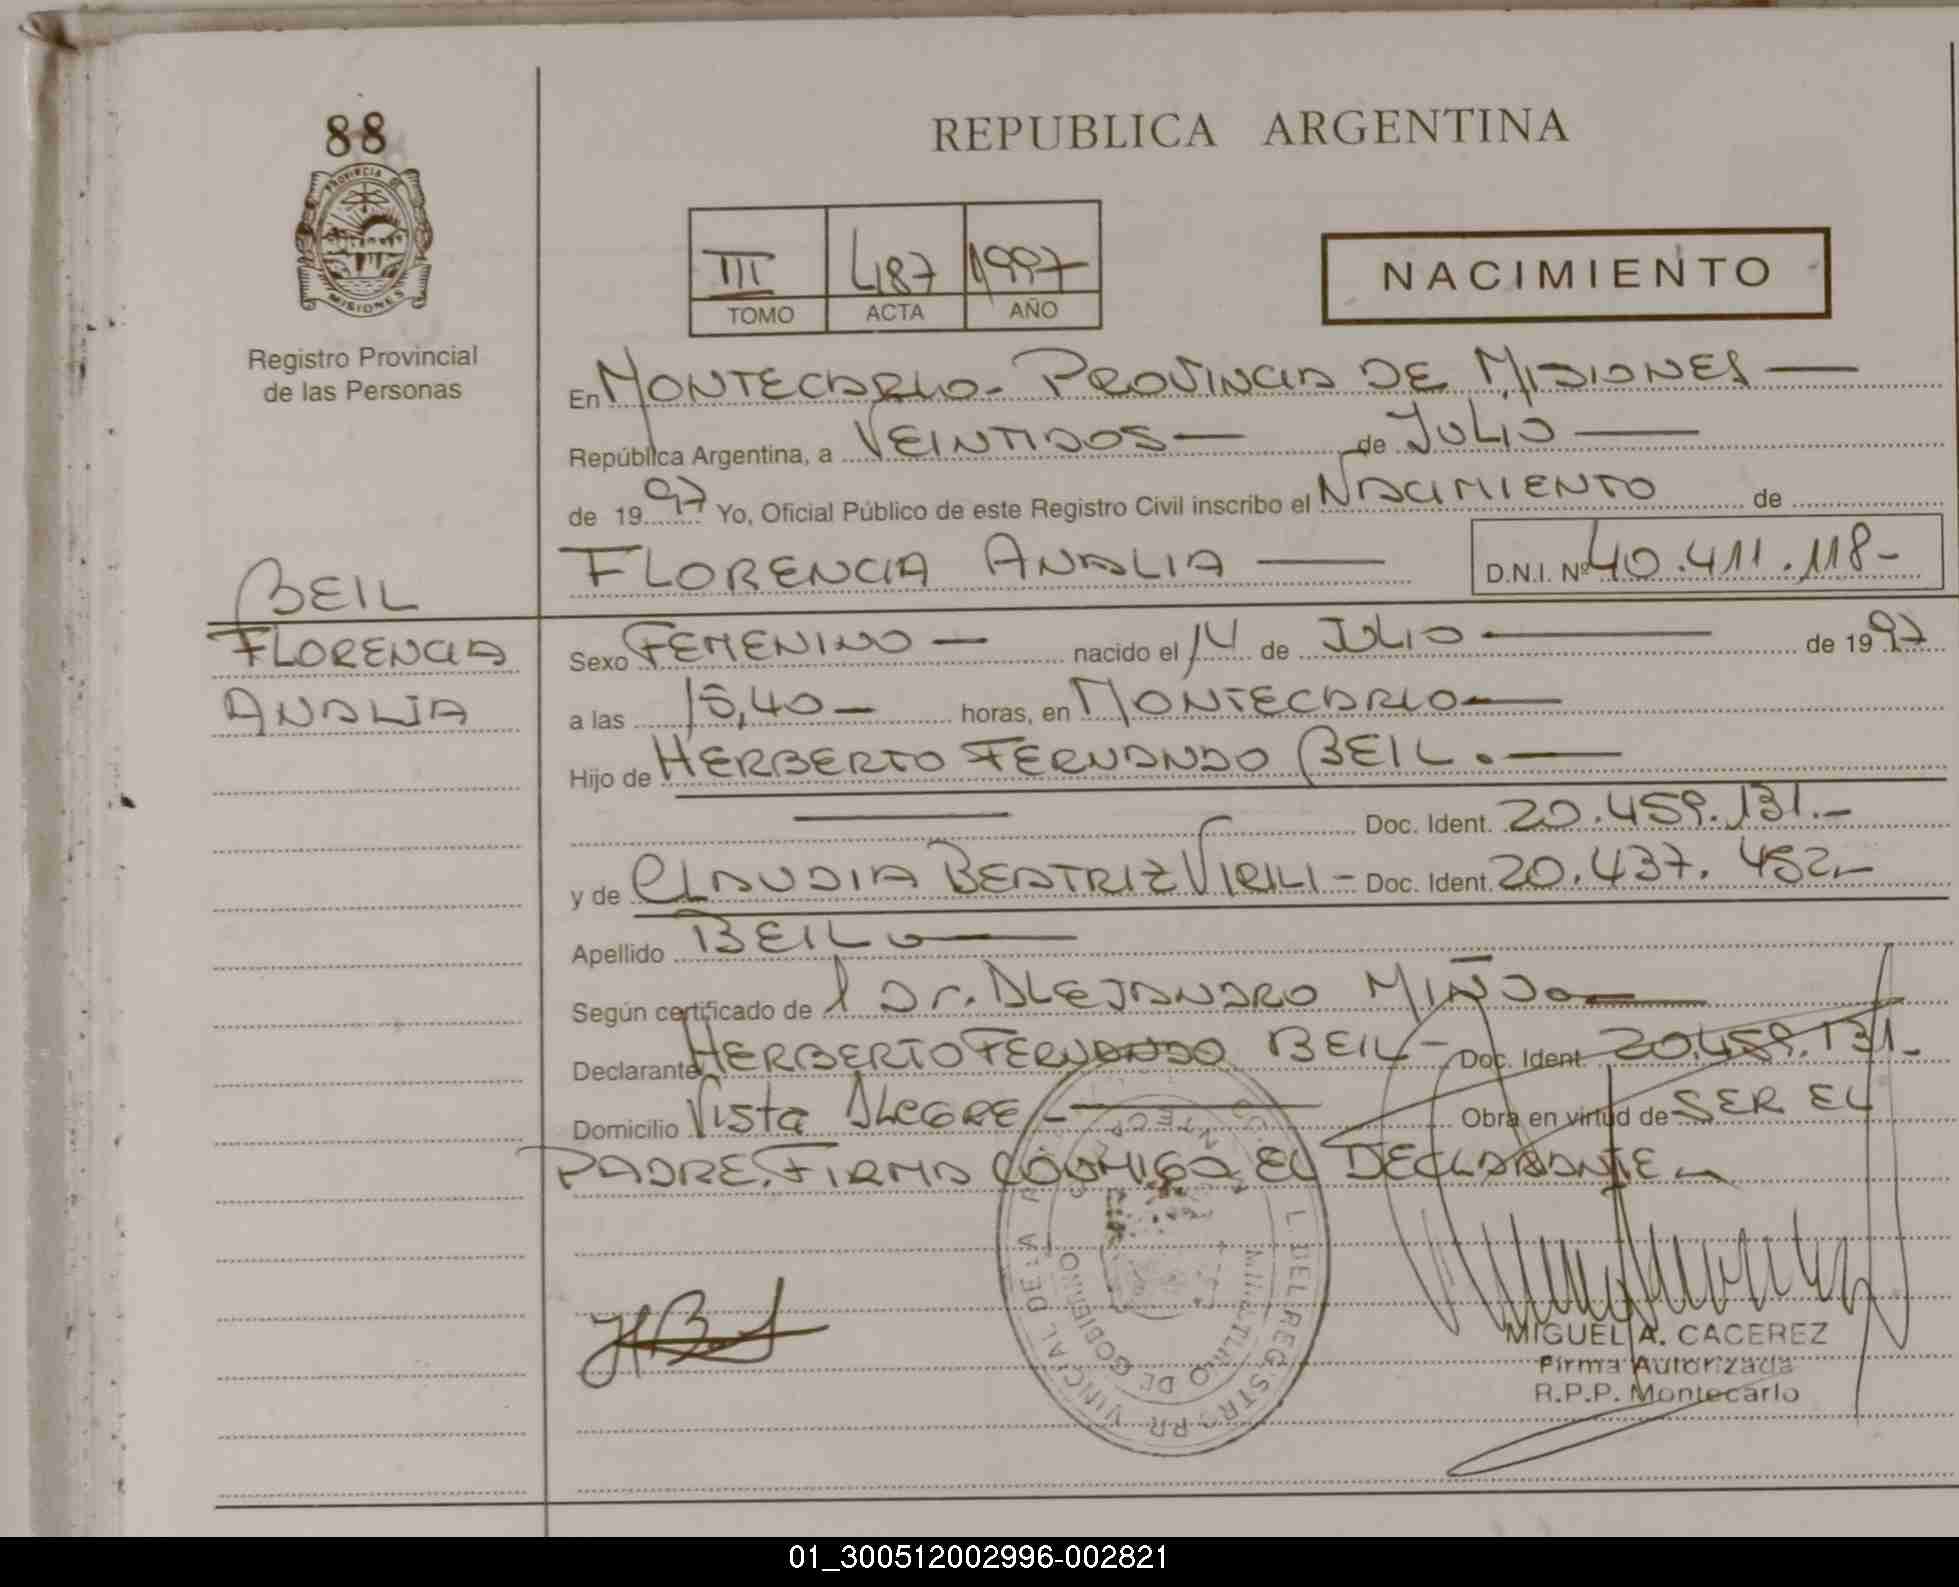 88
PROVINCIA DE
MISIONES
Registro Provincial
de las Personas
BEIL
FLORENCIA
ANALIA
REPUBLICA ARGENTINA
III 487 1997
TOMO ACTA AÑO
NACIMIENTO
En MONTECARLO - PROVINCIA DE MISIONES —
República Argentina, a VEINTIDOS — de JULIO —
de 1997 Yo, Oficial Público de este Registro Civil inscribo el NACIMIENTO de
FLORENCIA ANALIA — D.N.I. Nº 40.411.118-
Sexo FEMENINO — nacido el 14 de JULIO — de 1997
a las 15,40 — horas, en MONTECARLO —
Hijo de HERBERTO FERNANDO BEIL. —
— Doc. Ident. 20.459.131.-
y de CLAUDIA BEATRIZ VIRILI - Doc. Ident. 20.437.452.-
Apellido BEIL —
Según certificado de l Dr. ALEJANDRO MIÑO —
Declarante HERBERTO FERNANDO BEIL - Doc. Ident. 20.459.131.-
Domicilio Vista ALEGRE - — Obra en virtud de SER EL
PADRE. FIRMA CONMIGO EL DECLARANTE -
DEL REGISTRO PROVINCIAL DE
MINISTERIO DE GOBIERNO
MIGUEL A. CACEREZ
Firma Autorizada
R.P.P. Montecarlo
01_300512002996-002821